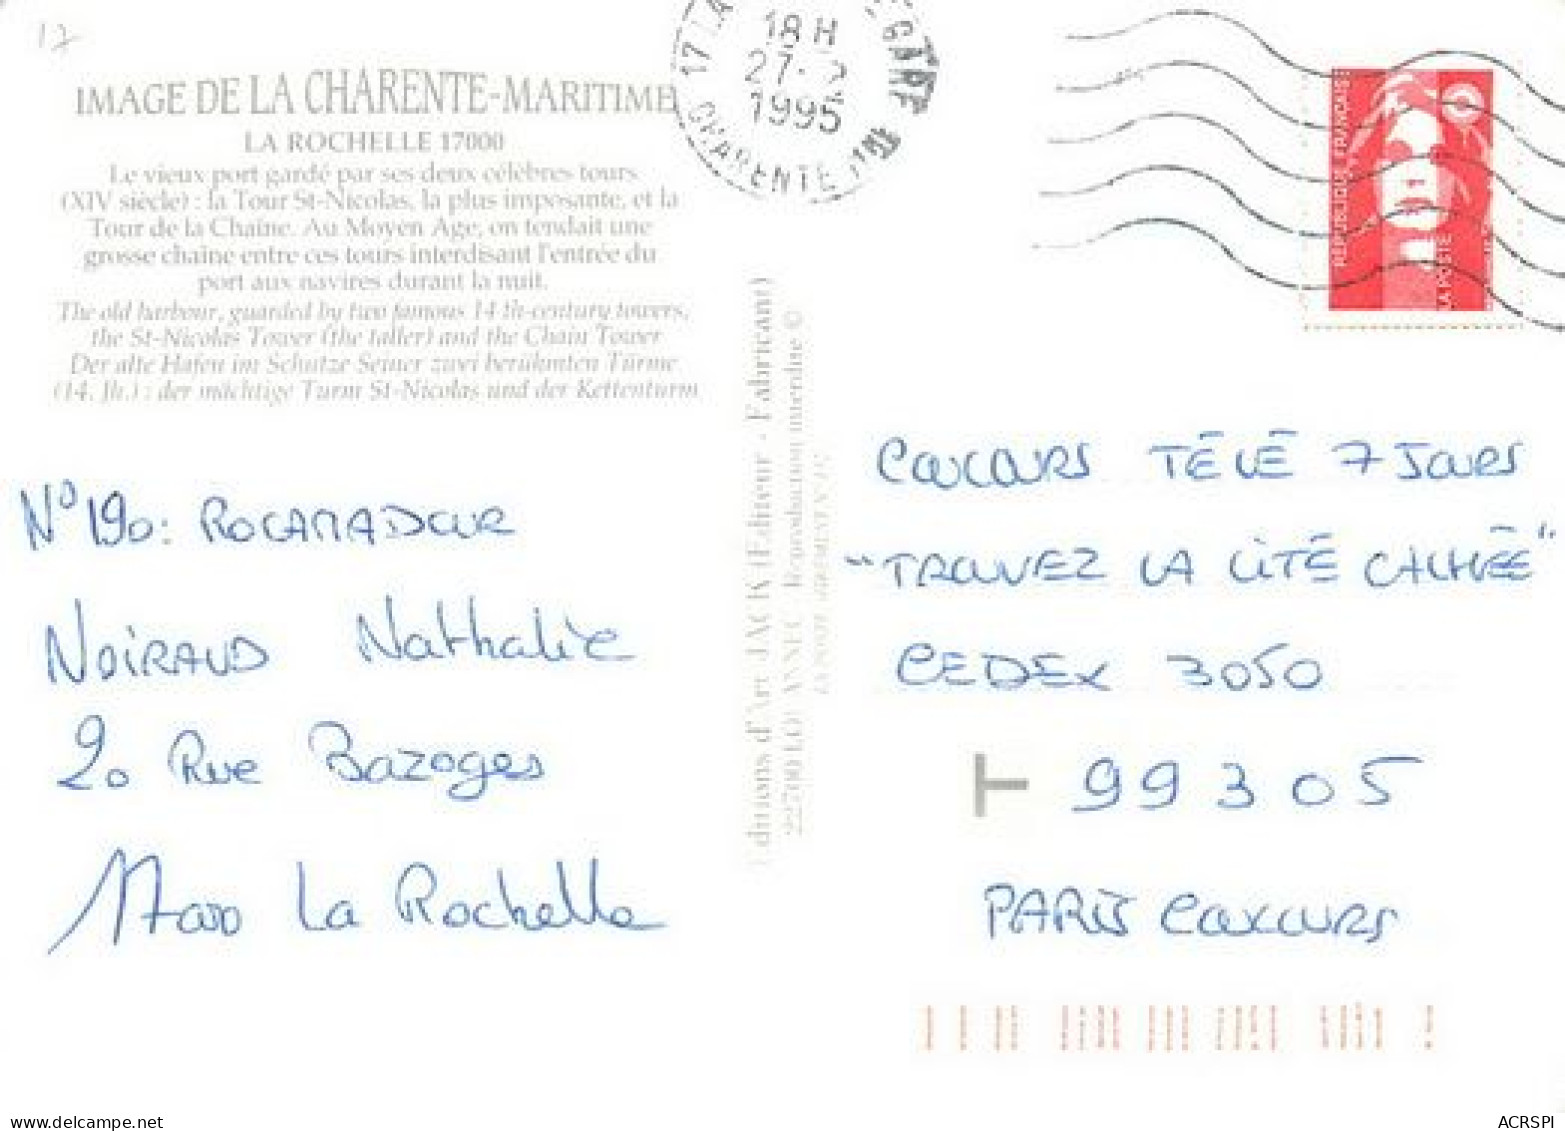 17
IMAGE DE LA CHARENTE-MARITIME
LA ROCHELLE 17000
Le vieux port gardé par ses deux célèbres tours
(XIV siècle) : la Tour St-Nicolas, la plus imposante, et la
Tour de la Chaîne. Au Moyen Age, on tendait une
grosse chaîne entre ces tours interdisant l'entrée du
port aux navires durant la nuit.
The old harbour, guarded by two famous 14 th-century towers,
the St-Nicolas Tower (the taller) and the Chain Tower
Der alte Hafen im Schutze Seiner zwei berühmten Türme
(14. Jh.) : der mächtige Turm St-Nicolas und der Kettenturm
17 LA
18H
27-
1995
CHARENTE
REPUBLIQUE FRANÇAISE
LA POSTE
Editions d'Art JACK (Editeur - Fabricant)
22700 LOUANNEC Reproduction interdite ©
N° 190: ROCAMADOUR
NOIRAUD Nathalie
20 Rue Bazoges
17000 La Rochelle
CONCOURS TÉLÉ 7 JOURS
"TROUVEZ LA CITÉ CACHÉE"
CEDEX 3050
T 99305
PARIS CONCOURS
ACRSPI
delcampe.net